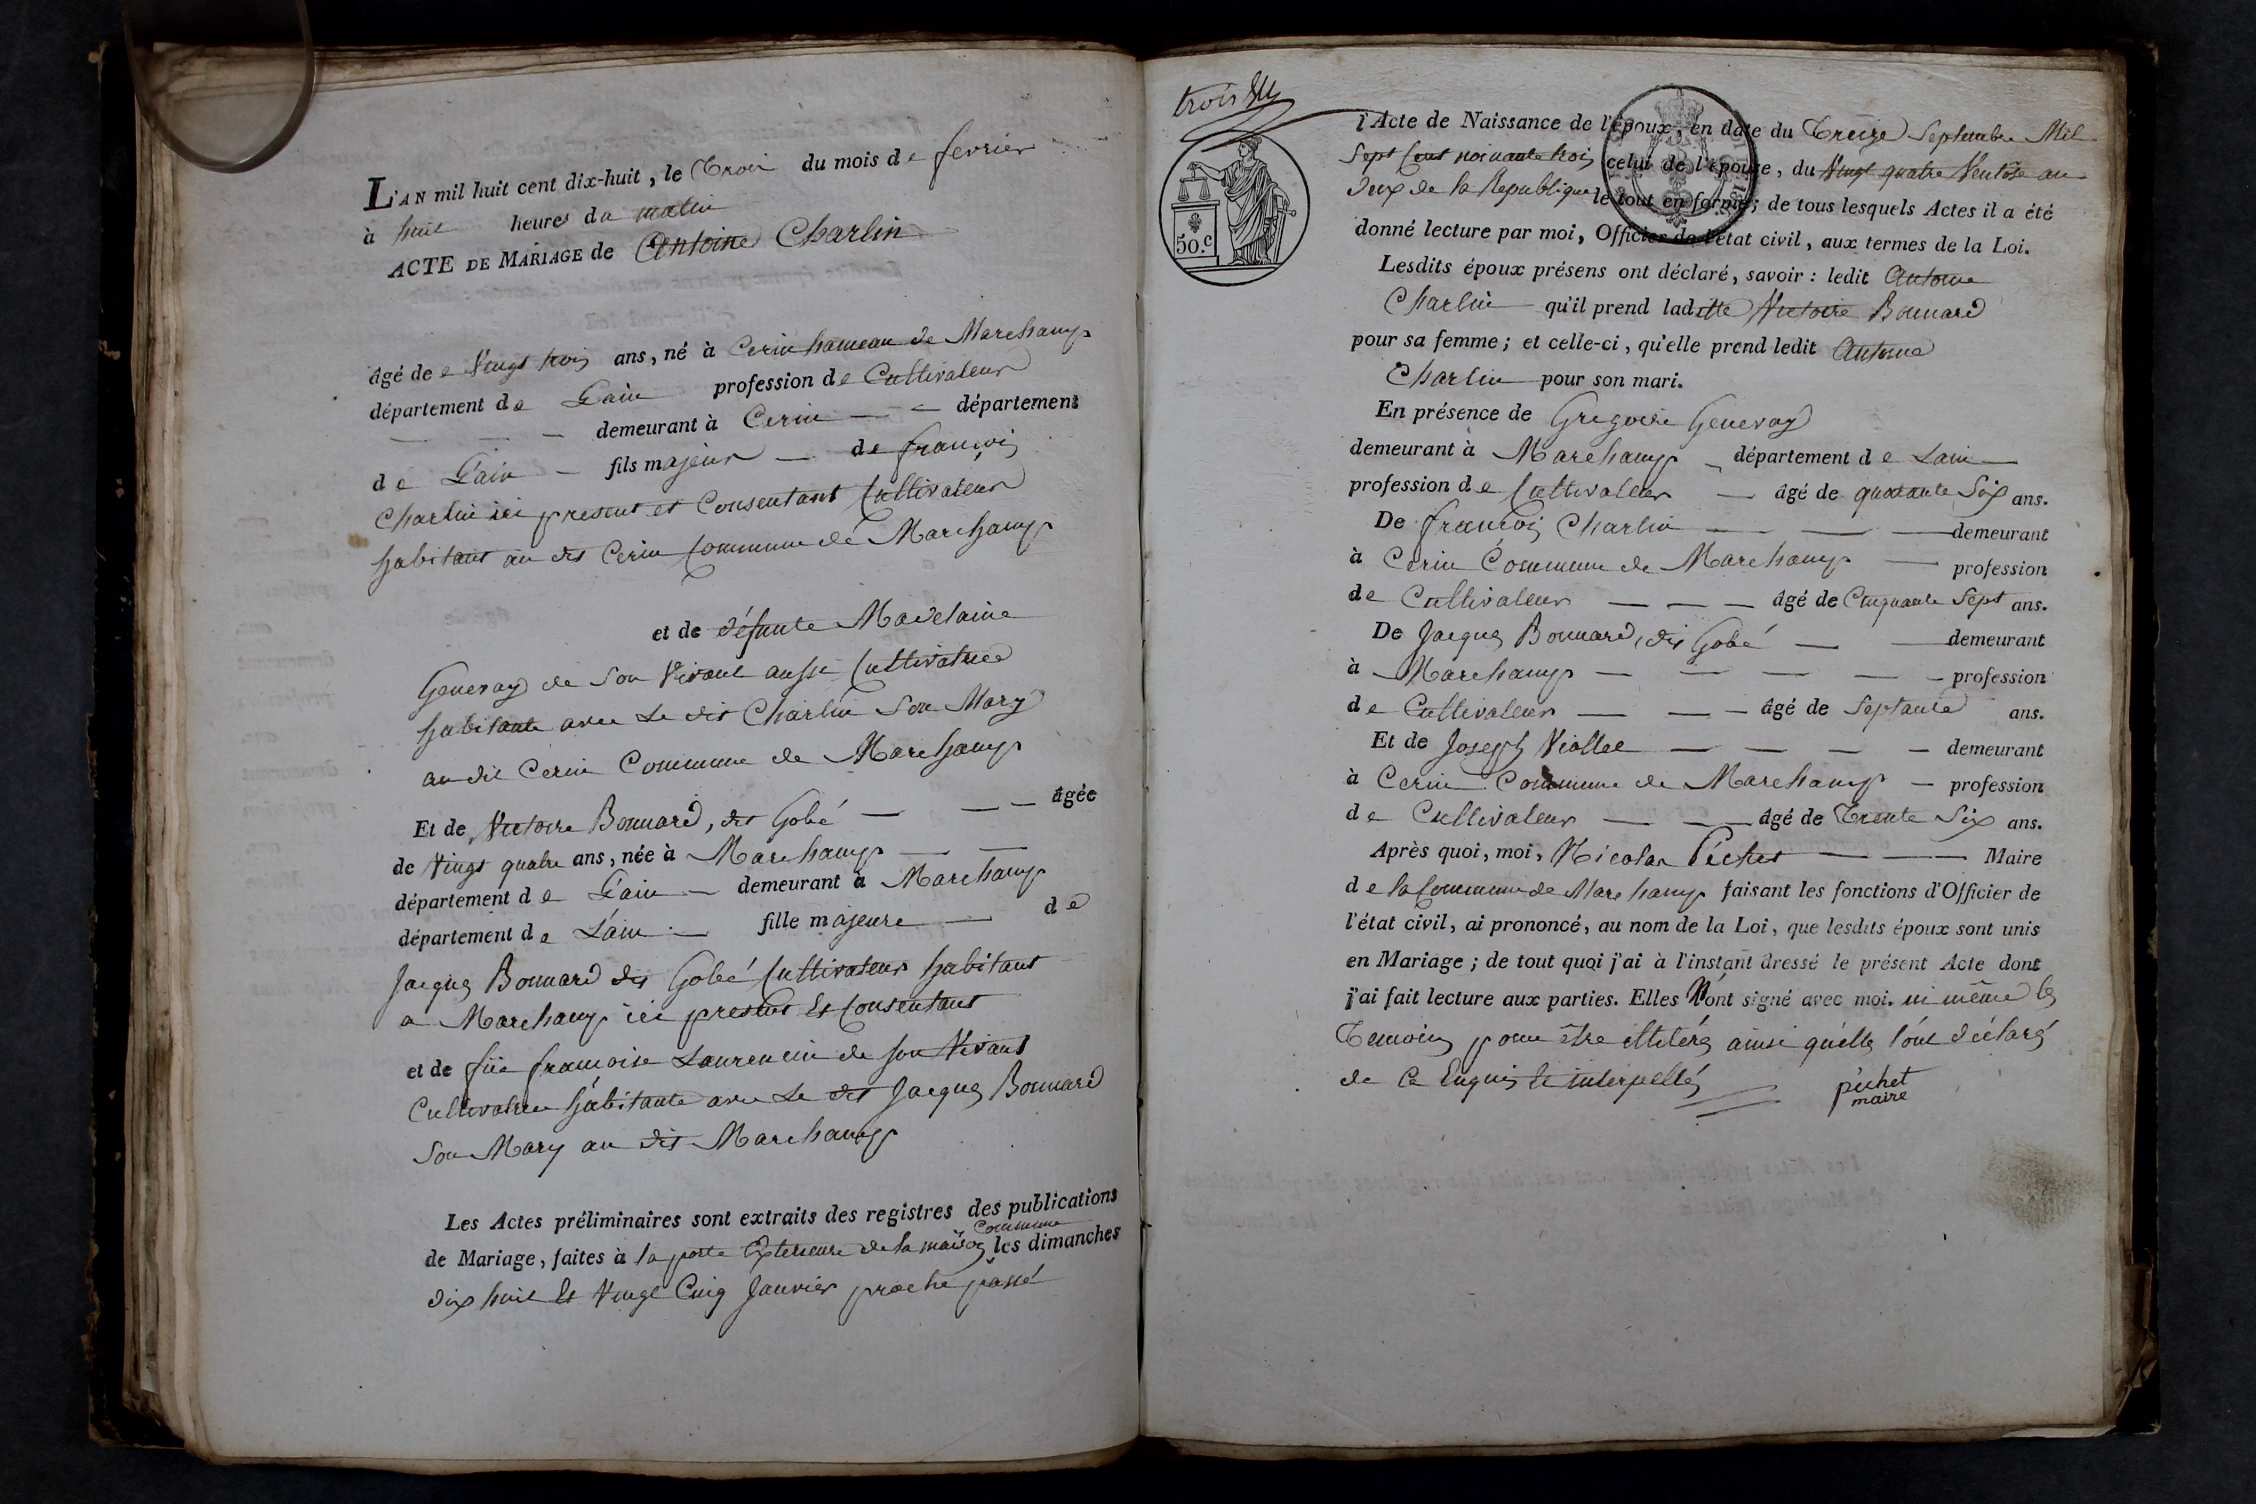 L'AN mil huit cent dix-huit, le Trois du mois de fevrier
à huit heures du matin
ACTE DE MARIAGE de Antoine Charlin
âgé de Vingt trois ans, né à Cerin hameau de Marchamp
département de L'ain profession de Cultivateur
demeurant à Cerin département
de L'ain fils majeur de françois
Charlin ici present et Consentant Cultivateur
habitant au dit Cerin Commune de Marchamp
et de défunte Madelaine
Genevay de Son Vivant aussi Cultivatrice
habitante avec Le dit Charlin Son Mary
au dit Cerin Commune de Marchamp
Et de Victoire Bonnard, dit Gobé âgée
de Vingt quatre ans, née à Marchamp
département de L'ain demeurant à Marchamp
département de L'ain fille majeure de
Jacques Bonnard dit Gobé Cultivateur habitant
a Marchamp ici present Et Consentant
et de füe francoise Laurencin de son Vivant
Cultivatrice habitante avec Le dit Jacques Bonnard
Son Mary au dit Marchamp
Les Actes préliminaires sont extraits des registres des publications
commune
de Mariage, faites à la porte Exterieure de la maison les dimanches
dix huit Et Vingt Cinq Janvier proche passé
trois
50.c
l'Acte de Naissance de l'époux, en date du Treize Septembre Mil
Sept Cent nonante trois celui de l'épouse, du Vingt quatre Ventose an
deux de la Republique le tout en forme; de tous lesquels Actes il a été
donné lecture par moi, Officier de l'état civil, aux termes de la Loi.
Lesdits époux présens ont déclaré, savoir: ledit Antoine
Charlin qu'il prend laditte Victoire Bonnard
pour sa femme; et celle-ci, qu'elle prend ledit Antoine
Charlin pour son mari.
En présence de Gregoire Genevay
demeurant à Marchamp département de Lain
profession de Cultivateur âgé de quarante Six ans.
De françois Charlin demeurant
à Cerin Commune de Marchamp profession
de Cultivateur âgé de Cinquante Sept ans.
De Jacques Bonnard, dit Gobé demeurant
à Marchamp profession
de Cultivateur âgé de Septante ans.
Et de Joseph Viollet demeurant
à Cerin Commune de Marchamp profession
de Cultivateur âgé de Trente Six ans.
Après quoi, moi, Nicolas Pichet Maire
de la Commune de Marchamp faisant les fonctions d'Officier de
l'état civil, ai prononcé, au nom de la Loi, que lesdits époux sont unis
en Mariage; de tout quoi j'ai à l'instant dressé le présent Acte dont
j'ai fait lecture aux parties. Elles N'ont signé avec moi. ni même les
Temoins pour être illiterés ainsi qu'elles l'ont déclaré
de Ce Enquis Et interpellés
pichet
maire